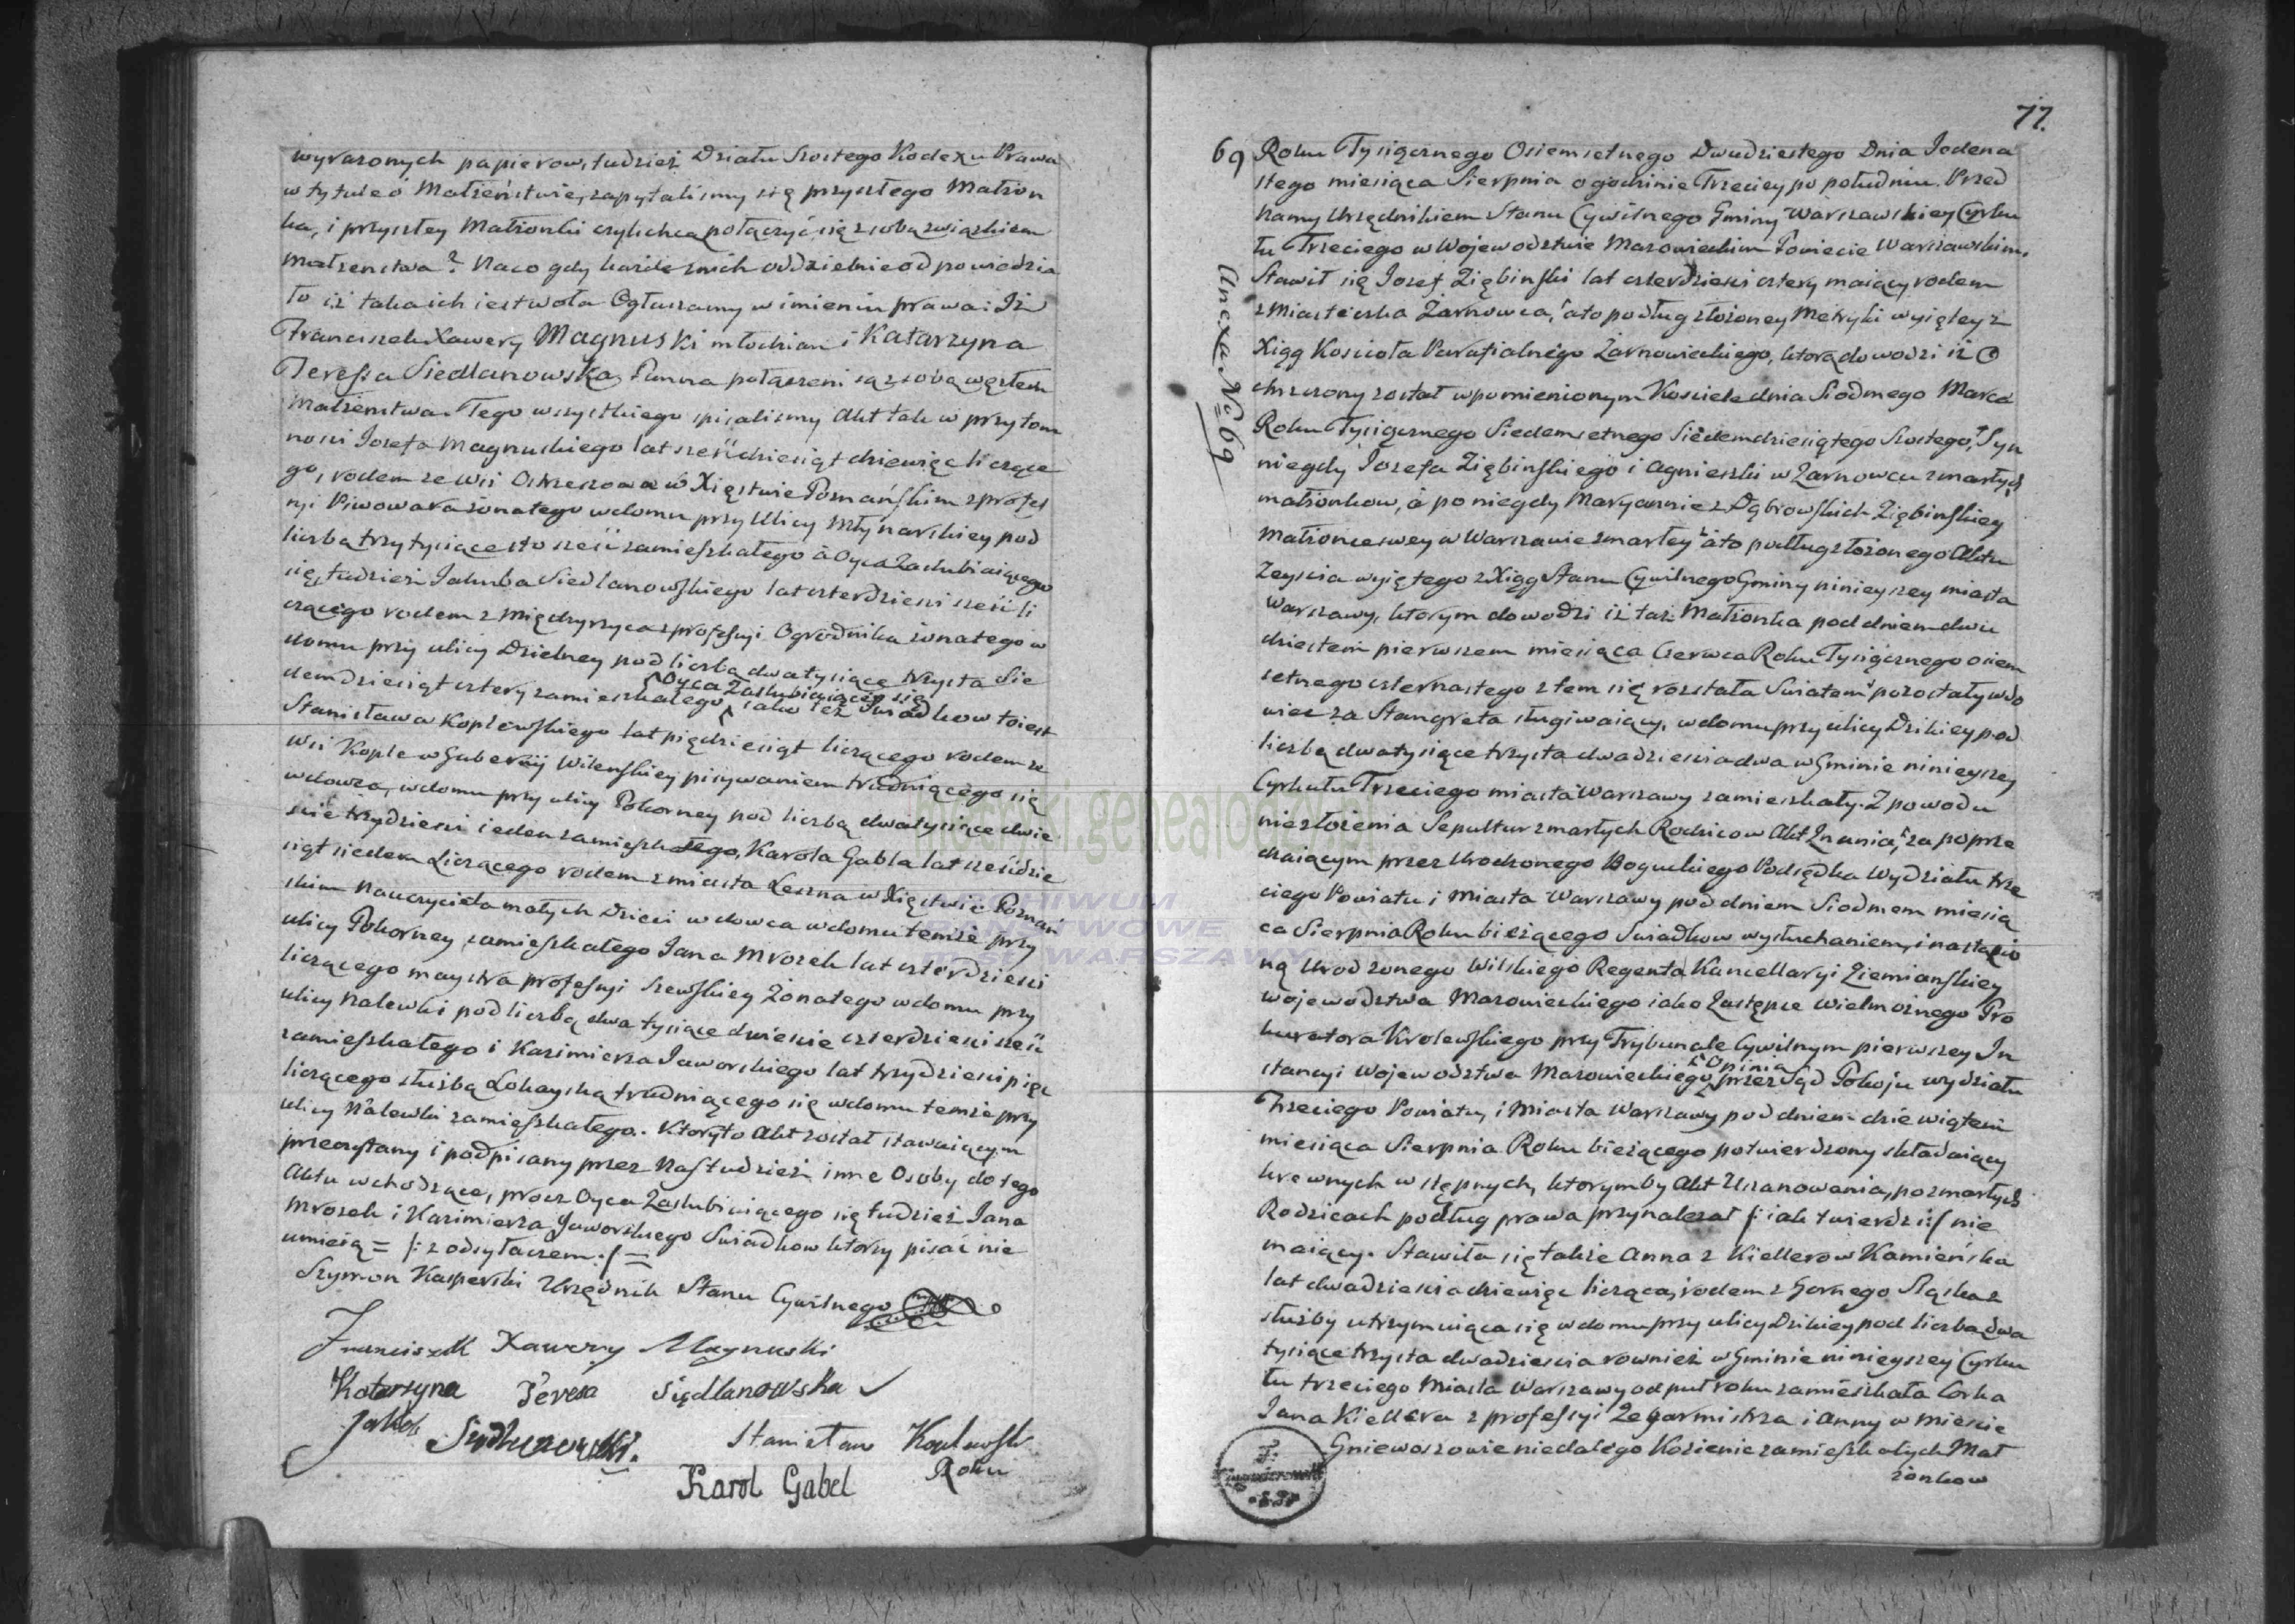 wyrazonych papierow, tudzież Działu Szostego Kodexu Prawa
w tytule o Małżeństwie, zapytalismy się przyszłego Małżon
ka, i przyszłey Małżonki czyli chcą połączyć się z sobą związkiem
Małzenstwa? Na co gdy każde z nich oddzielnie odpowiedzia
ło iż taka ich iest wola Ogłaszamy w imieniu prawa: Iż
Franciszek Xawery Magnuski młodzian i Katarzyna
Teressa Siedlanowska, Panna połączeni są z sobą węzłem
Małżenstwa. Tego wszystkiego spisalismy Akt tak w przytom
nosci Iozefa Magnuskiego lat sześćdziesiąt dziewięć liczące
go, rodem ze wsi Ostrzeszowa w Xięstwie Poznańskim z profes
syi Piwowara żonatego w domu przy Ulicy Młynarskiey pod
liczbą trzy tysiące sto sześć zamieszkałego á Oyca Zaslubiaiącego
się, tudzież Iakuba Siedlanowskiego lat czterdzieści sześć li
czącego rodem z Międzyrzyca z professyi Ogrodnika żonatego w
domu przy ulicy Dzielney pod liczbą dwa tysiące trzysta Sie
demdziesiąt cztery zamieszkałego Oyca Zaslubiaiącey się iako też Swiadkow to iest
Stanisława Koplewskiego lat pięćdziesiąt liczącego rodem ze
wsi Kople w Gubernij Wilenskiey pisywaniem trudniącego się
wdowca, w domu przy ulicy Pokorney pod liczbą dwa tysiące dwie
scie trzydzieści ieden zamieszkałego, Karola Gabla lat sześćdzie
siąt siedem Liczącego rodem z miasta Leszna w Xięstwie Poznań
skim Nauczyciela małych Dzieci wdowca w domu temże przy
ulicy Pokorney zamieszkałego Iana Mrozek lat czterdzieści
liczącego maystra professyi Szewskiey Żonatego w domu przy
ulicy Nalewki pod liczbą dwa tysiące dwieście czterdzieści sześć
zamieszkałego i Kazimierza Iaworskiego lat trzydzieści pięć
liczącego służbą Lokayską trudniącego się w domu temże przy
ulicy Nalewki zamieszkałego. Ktoryto Akt został stawaiącym
przeczytany i podpisany przez Nas tudzież inne Osoby do tego
Aktu wchodzące, procz Oyca Zaslubiaiącego się tudzież Iana
Mrozek i Kazimierza Jaworskiego Swiadkow ktorzy pisać nie
umieią = /: z odsyłaczem :/ =
Szymon Kasperski Urzędnik Stanu Cywilnego
Franciszek Xawery Magnuski
Katarzyna Teresa Siedlanowska
Jakob Siedlanowski. Stanisław Koplewski
Karol Gabel Roku
77.
69 Roku Tysiącznego Osiemsetnego Dwudziestego Dnia Iedena
stego miesiąca Sierpnia o godzinie Trzeciey po południu. Przed
Namy Urzędnikiem Stanu Cywilnego Gminy Warszawskiey Cyrku
łu Trzeciego w Wojewodztwie Mazowieckim Powiecie Warszawskim,
Stawił się Iozef Ziębinski lat czterdzieści cztery maiący rodem
z Miasteczka Żarnowca, á to podług złożoney Metryki wyiętey z
Xiąg Koscioła Parafialnego Żarnowieckiego, ktorą dowodzi iż O
chrzczony został wpomienionym Kosciele dnia Siodmego Marca
Roku Tysiącznego Siedemsetnego Siedemdziesiątego Szostego, Syn
niegdy Iozefa Ziębinskiego i Agnieszki w Zarnowcu zmarłych
małżonkow, á po niegdy Maryannie z Dąbrowskich Ziębinskiey
Małżonce swey w Warszawie zmarłey á to podług złożonego Aktu
Zeyscia wyiętego z Xiąg Stanu Cywilnego Gminy ninieyszey miasta
Warszawy, ktorym dowodzi iż taż Małżonka pod dniem dwu
dziestem pierwszem miesiąca Czerwca Roku Tysiącznego osiem
setnego czternastego z tem się rozstała Swiatem pozostały wdo
wiec za Stangreta sługiwaiący, w domu przy ulicy Dzikiey pod
liczbą dwa tysiące trzysta dwadziescia dwa w Gminie ninieyszey
Cyrkułu Trzeciego miasta Warszawy zamieszkały. Z powodu
niezłożenia Sepultur zmarłych Rodzicow Akt Znania, za poprze
dzaiącym przez Urodzonego Boguckiego Podsędka Wydziału trze
ciego Powiatu i Miasta Warszawy pod dniem Siodmem miesią
ca Sierpnia Roku bieżącego Swiadkow wysłuchaniem, i nastąpio
ną Urodzonego Wilskiego Regenta Kancellaryi Ziemianskiey
Wojewodztwa Mazowieckiego iako Zastępce Wielmożnego Pro
kuratora Krolewskiego przy Trybunale Cywilnym pierwszey In
stancyi Wojewodztwa Mazowieckiego Opinią przez Sąd Pokoju wydziału
Trzeciego Powiatu, i Miasta Warszawy pod dniem dziewiątem
miesiąca Sierpnia Roku bieżącego potwierdzony składaiący
krewnych wstępnych, ktorymby Akt Uszanowania, po zmarłych
Rodzicach podług prawa przynależał /: iak twierdzi :/ nie
maiący. Stawiła się także Anna z Kiellerow Kamieńska
lat dwadziescia dziewięć licząca, rodem z Gornego Sląska z
służby utrzymuiąca się w domu przy ulicy Dzikiey pod liczbą dwa
tysiące trzysta dwadziescia rownież w Gminie ninieyszey Cyrku
łu trzeciego Miasta Warszawy od puł roku zamieszkała Corka
Jana Kiellera z professyi Zegarmistrza i Anny w miescie
Gniewoszowie niedalego Kozienic zamieszkałych Mał
żonkow
Anexa No 69
metryki.genealodzy.pl
ARCHIWUM
PAŃSTWOWE
WARSZAWY